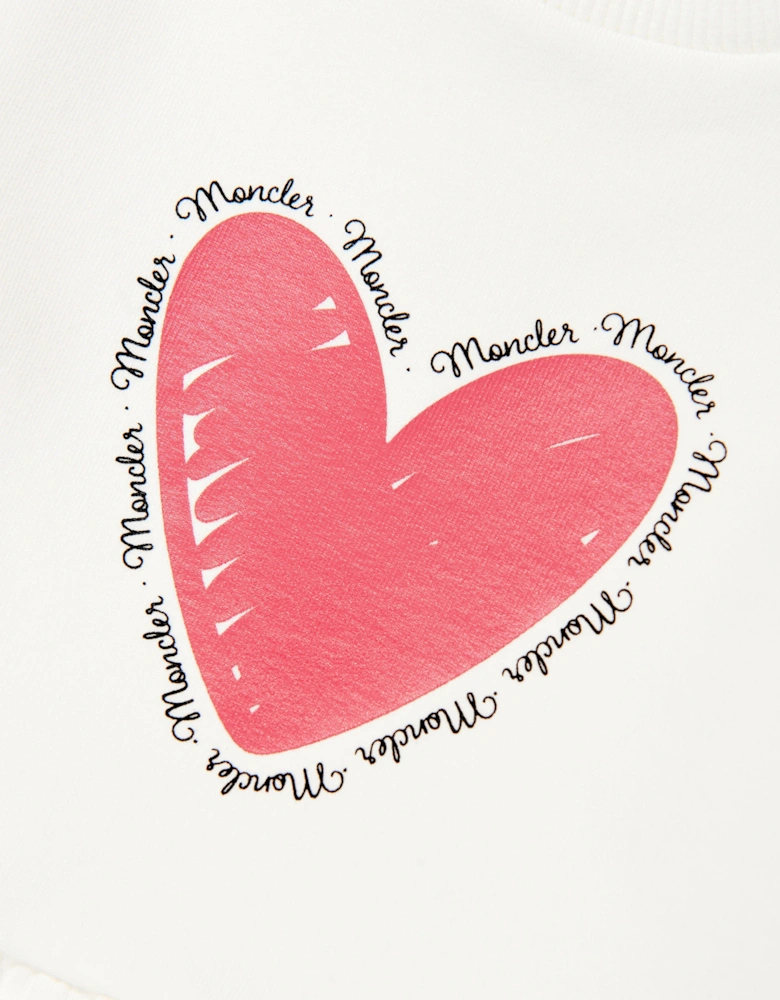 Moncler · Moncler · Moncler · Moncler · Moncler · Moncler · Moncler · Moncler · Moncler · Moncler · Moncler ·